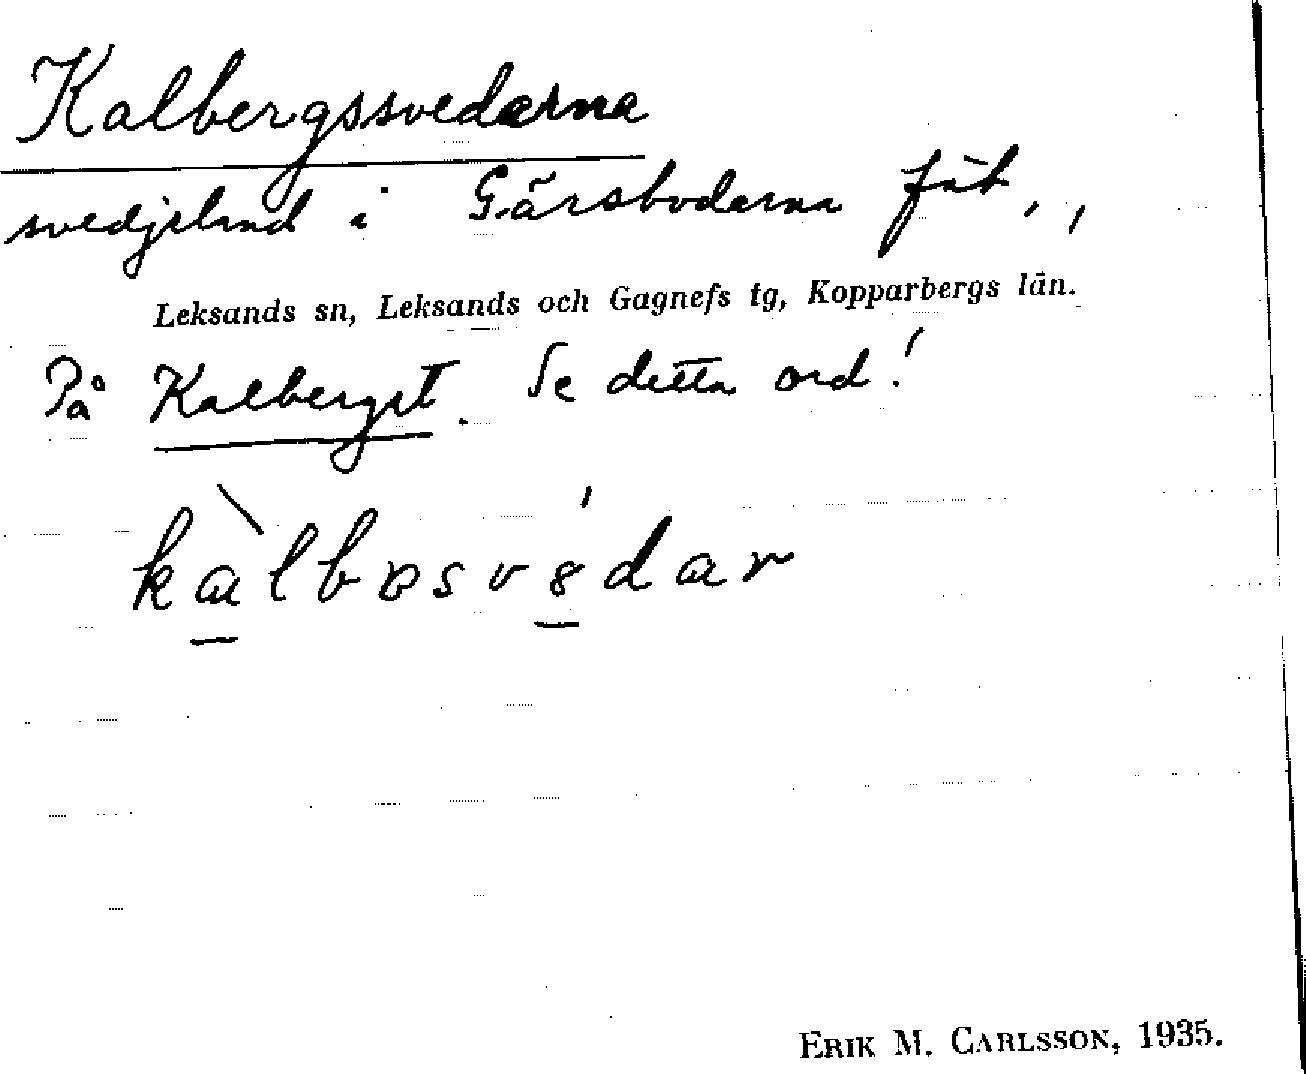 Kalbergssvedarna
svedjeland i Gärsbodarna fäb.,
Leksands sn, Leksands och Gagnefs tg, Kopparbergs län.
På Kalberget. Se detta ord!
ERIK M. CARLSSON, 1935.